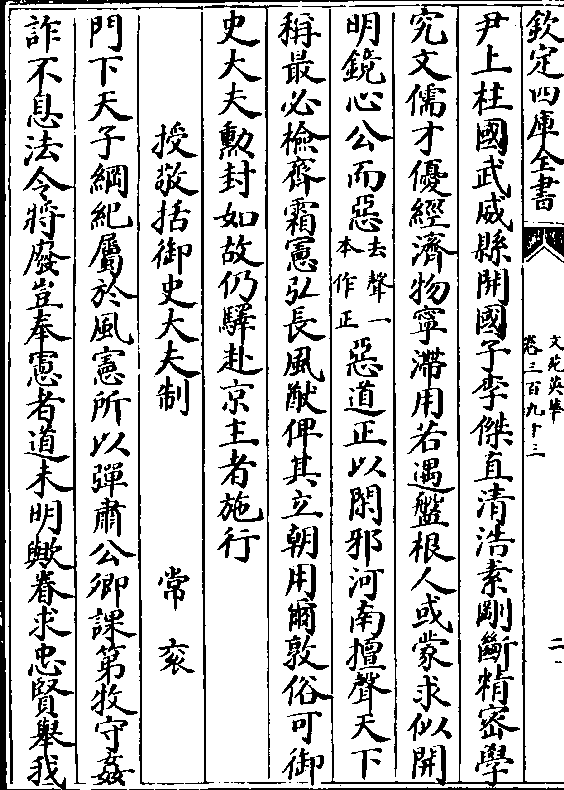 欽定四庫全書
文苑英華
卷三百九十三
二
尹上柱國武威縣開國子李傑直清浩素剛斷精密學
究文儒才優經濟物寧滯用若遇盤根人或蒙求似開
明鏡心公而惡去聲一本作正惡道正以閑邪河南擅聲天下
稱最必檢齊霜憲弘長風猷俾其立朝用爾敦俗可御
史大夫勲封如故仍驛赴京主者施行
授敬括御史大夫制 常衮
門下天子綱紀屬於風憲所以彈肅公卿課第牧守姦
詐不息法令將廢豈奉憲者道未明歟眷求忠賢舉我